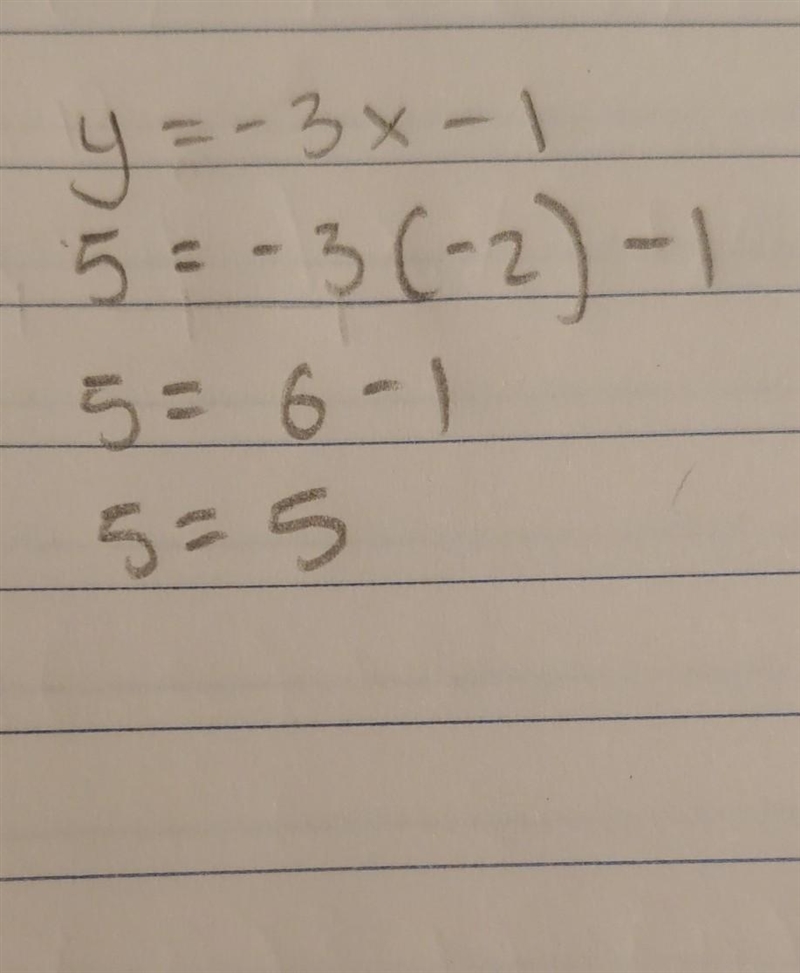 y = -3x - 1
5 = -3(-2) - 1
5 = 6 - 1
5 = 5